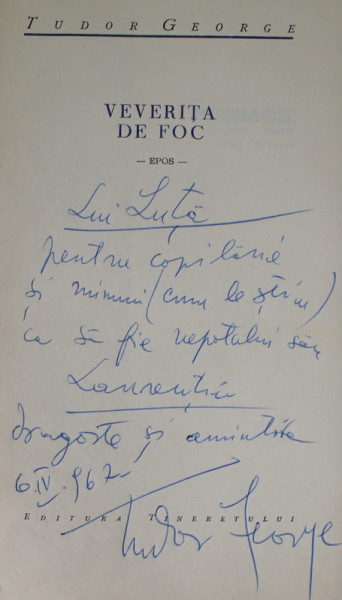 TUDOR GEORGE
VEVERIȚA
DE FOC
— EPOS —
Lui Luță
pentru copilărie
și minuni (cum le știm)
ca să fie nepotului său
Laurențiu
dragoste și amintire
6.IV.967
EDITURA TINERETULUI
Tudor George